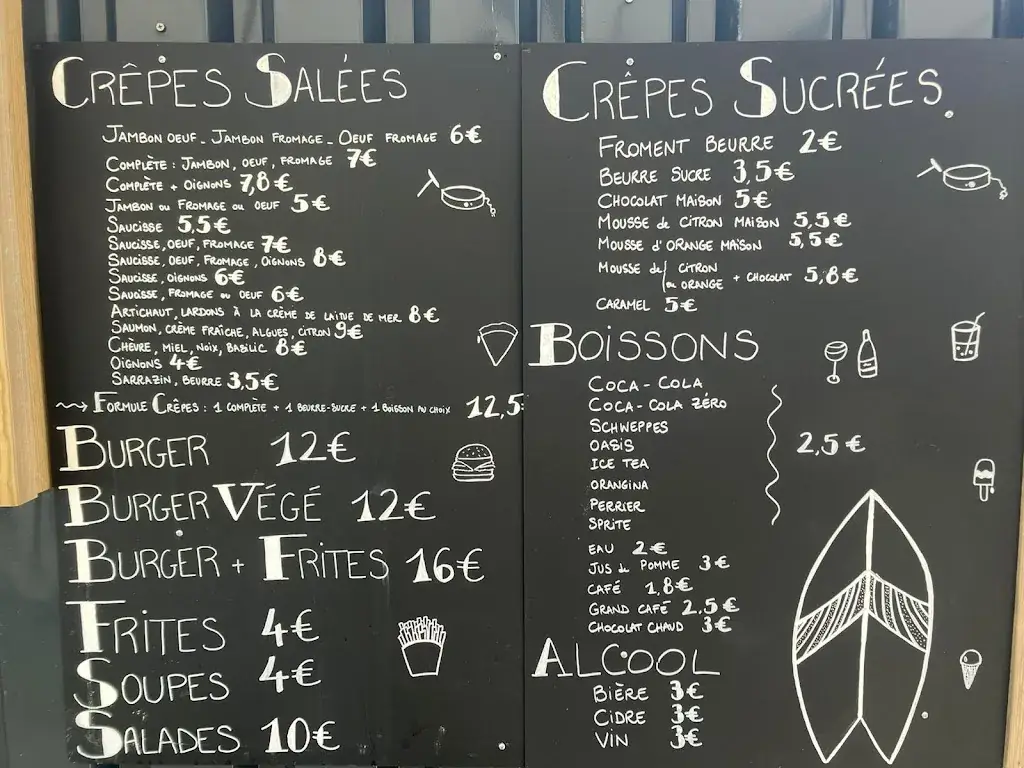 CRÊPES SALÉES
JAMBON OEUF - JAMBON FROMAGE - OEUF FROMAGE 6€
COMPLÈTE : JAMBON, OEUF, FROMAGE 7€
COMPLÈTE + OIGNONS 7,8€
JAMBON OU FROMAGE OU OEUF 5€
SAUCISSE 5,5€
SAUCISSE, OEUF, FROMAGE 7€
SAUCISSE, OEUF, FROMAGE, OIGNONS 8€
SAUCISSE, OIGNONS 6€
SAUCISSE, FROMAGE OU OEUF 6€
ARTICHAUT, LARDONS À LA CRÈME DE LAITUE DE MER 8€
SAUMON, CRÈME FRAÎCHE, ALGUES, CITRON 9€
CHÈVRE, MIEL, NOIX, BASILIC 8€
OIGNONS 4€
SARRAZIN, BEURRE 3,5€
FORMULE CRÊPES : 1 COMPLÈTE + 1 BEURRE-SUCRE + 1 BOISSON AU CHOIX 12,5
BURGER 12€
BURGER VÉGÉ 12€
BURGER + FRITES 16€
FRITES 4€
SOUPES 4€
SALADES 10€
CRÊPES SUCRÉES
FROMENT BEURRE 2€
BEURRE SUCRE 3,5€
CHOCOLAT MAISON 5€
MOUSSE DE CITRON MAISON 5,5€
MOUSSE D'ORANGE MAISON 5,5€
MOUSSE de CITRON
ou ORANGE + CHOCOLAT 5,8€
CARAMEL 5€
BOISSONS
COCA-COLA
COCA-COLA ZÉRO
SCHWEPPES
OASIS 2,5€
ICE TEA
ORANGINA
PERRIER
SPRITE
EAU 2€
JUS de POMME 3€
CAFÉ 1,8€
GRAND CAFÉ 2,5€
CHOCOLAT CHAUD 3€
ALCOOL
BIÈRE 3€
CIDRE 3€
VIN 3€